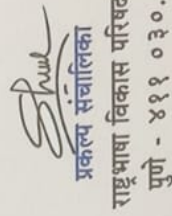 प्रकल्प संचालिका
राष्ट्रभाषा विकास परिषद
पुणे - ४११ ०३०.